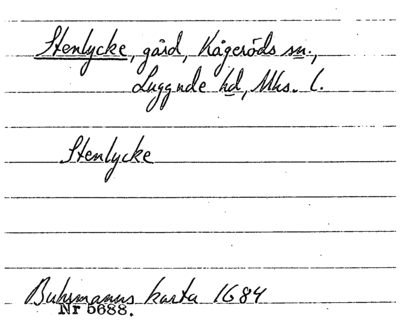 Stenlycke, gård, Kågeröds sn.,
Luggude hd, Mhs. l.
Stenlycke
Buhrmanns karta 1684
Nr 5688.